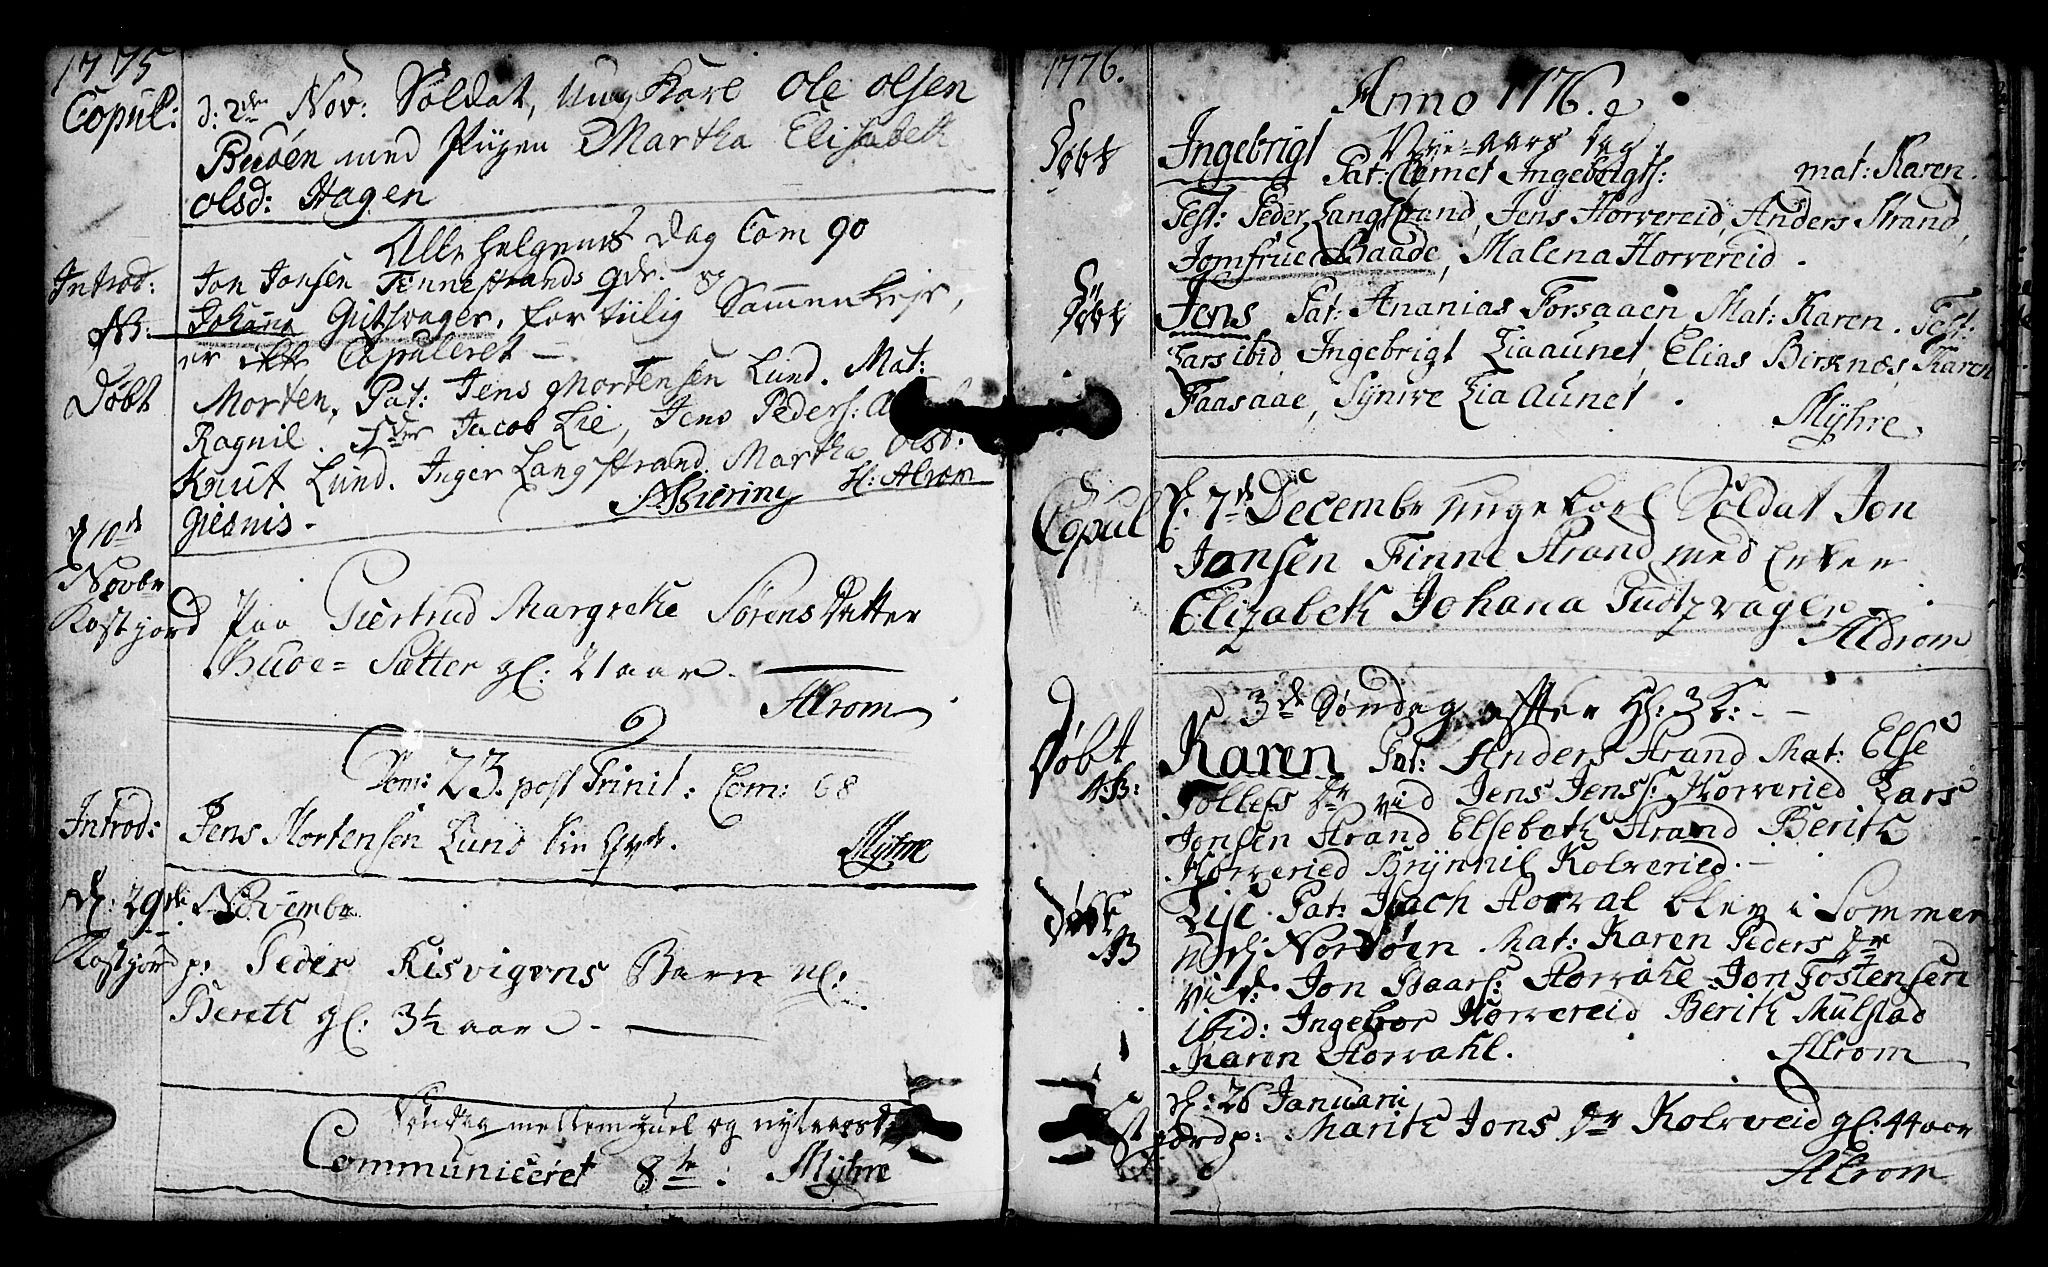 1775
Copul: d: 2den Nov: Soldat, Ung Karl Ole Olsen
Budøen med Pigen Martha Elisabeth
Olsd: Hagen
Alle helgens dag Com 90
Introd: Jon Jonsen Finnestrands qdr. og
NB. Johana Gutsvager, for tiilig Sammenleje,
er Copuleret —
Døbt Morten, Pat: Jens Mortensen Lund. Mat:
Ragnil. Jacob Lie, Jens Peders:
Knut Lund. Inger Langstrand. Martha Olsd:
Giesnis. Biering H: Alrom
d 10de
Novbr
Kastjord Paa Giertrud Margrethe Sørens Datter
Sætter gl: 21 aar.
Alrom
Dom: 23. post Trinit: Com: 68
Introd: Jens Mortensen Lund
Myhre
d: 29de Novembr
Kastjord p: Peder Risvigens Barn nl:
Bereth gl: 3½ aar.
Søndag mellem Juel og nytaars
Communiceret 8te: Myhre
1776.
Anno 1776.
Døbt Ingebrigt Nye-aars dag.
Pat: Clemet Ingebrigts: mat: Karen.
Test: Peder Langstrand, Jens Horvereid, Anders Strand,
Jomfrue Baade, Malena Horvereid.
Døbt Jens Pat: Ananias Forsaaen Mat: Karen. Test:
Lars ibid, Ingebrigt Liaaunet, Elias Birknes, Karen
Faasaae, Synwe Lia Aunet.
Myhre.
Copul d. 7de Decembr unge Karl Soldat Jon
Jonsen Finne Strand med Enken
Elizabeth Johana Gudtzvager
Aldrom
d 3de Søndag effter H: 3 K: -
Døbt Karen Pat: Anders Strand Mat: Else
NB: Tollefs Dr vid Jens Jenss: Horveried Lars
Jonsen Strand Elsebeth Strand Berith
Horveried Brynnil Kolveried. -
Døbt Lise. Pat: Isach Horval blev i Sommer
NB Nordøen. Mat: Karen Peders Dr
Vid: Jon Baars: Horvahl Jon Tostensen
ibid: Ingebor Horvereid Berith Mulstad
Karen Horvahl. Alrom
d: 26 Januari
Kastjord p: Marith Jons Dr Kolvreid gl: 44 aar
Alrom